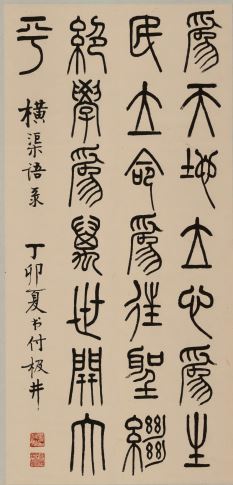 爲天地立心爲生
民立命爲往聖繼
絕學爲萬世開太
平
橫渠語录
丁卯夏书付极井